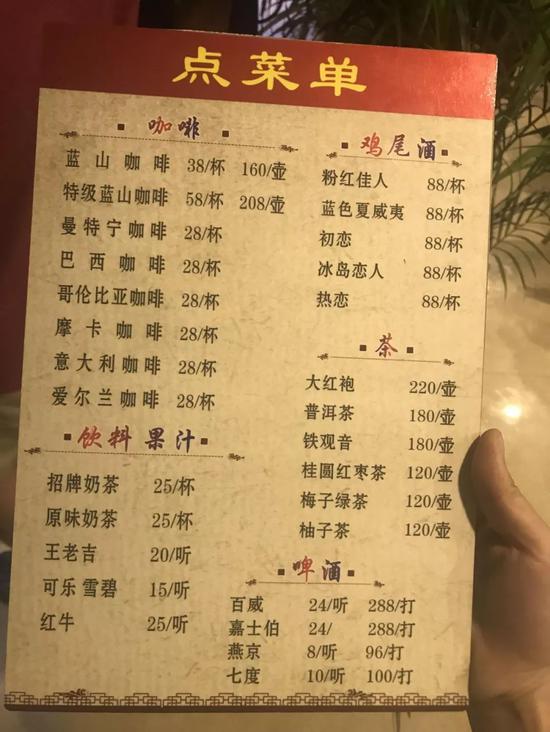 点菜单
咖啡
蓝山咖啡 38/杯 160/壶
特级蓝山咖啡 58/杯 208/壶
曼特宁咖啡 28/杯
巴西咖啡 28/杯
哥伦比亚咖啡 28/杯
摩卡咖啡 28/杯
意大利咖啡 28/杯
爱尔兰咖啡 28/杯
饮料果汁
招牌奶茶 25/杯
原味奶茶 25/杯
王老吉 20/听
可乐雪碧 15/听
红牛 25/听
鸡尾酒
粉红佳人 88/杯
蓝色夏威夷 88/杯
初恋 88/杯
冰岛恋人 88/杯
热恋 88/杯
茶
大红袍 220/壶
普洱茶 180/壶
铁观音 180/壶
桂圆红枣茶 120/壶
梅子绿茶 120/壶
柚子茶 120/壶
啤酒
百威 24/听 288/打
嘉士伯 24/ 288/打
燕京 8/听 96/打
七度 10/听 100/打